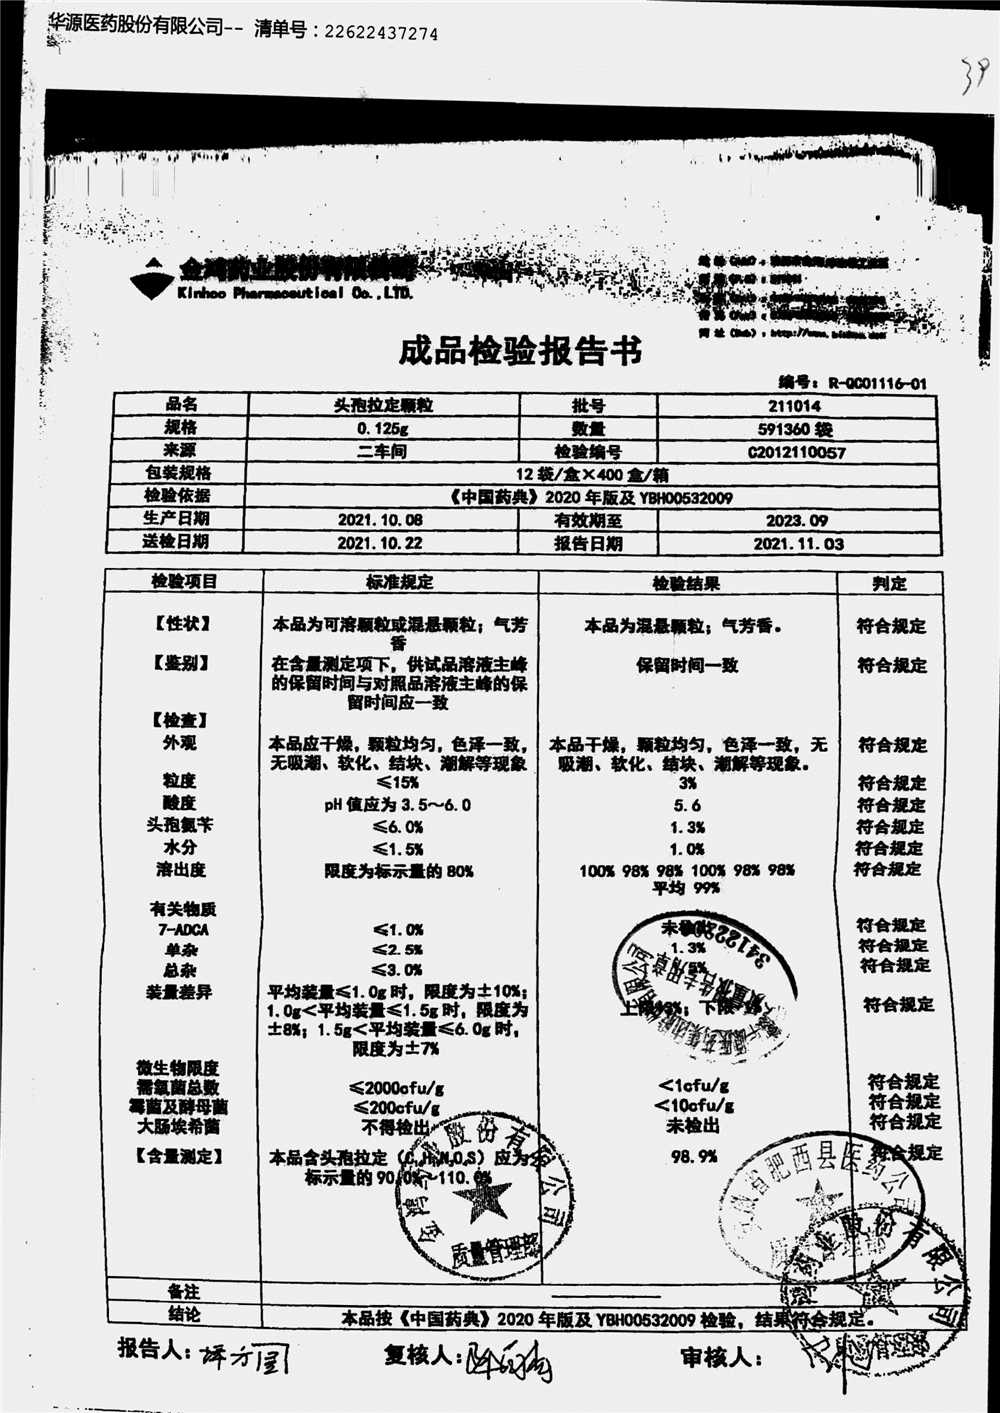 华源医药股份有限公司-- 清单号：22622437274
39
金鸿药业股份有限公司
Kinhoo Pharmaceutical Co.,LTD.
成品检验报告书
编号：R-QC01116-01
品名 头孢拉定颗粒 批号 211014
规格 0.125g 数量 591360 袋
来源 二车间 检验编号 C2012110057
包装规格 12 袋/盒×400 盒/箱
检验依据 《中国药典》2020 年版及 YBH00532009
生产日期 2021.10.08 有效期至 2023.09
送检日期 2021.10.22 报告日期 2021.11.03
检验项目 标准规定 检验结果 判定
【性状】 本品为可溶颗粒或混悬颗粒；气芳 本品为混悬颗粒；气芳香。 符合规定
香
【鉴别】 在含量测定项下，供试品溶液主峰 保留时间一致 符合规定
的保留时间与对照品溶液主峰的保
留时间应一致
【检查】
外观 本品应干燥，颗粒均匀，色泽一致， 本品干燥，颗粒均匀，色泽一致，无 符合规定
无吸潮、软化、结块、潮解等现象 吸潮、软化、结块、潮解等现象。
粒度 ≤15% 3% 符合规定
酸度 pH 值应为 3.5～6.0 5.6 符合规定
头孢氨苄 ≤6.0% 1.3% 符合规定
水分 ≤1.5% 1.0% 符合规定
溶出度 限度为标示量的 80% 100% 98% 98% 100% 98% 98% 符合规定
平均 99%
有关物质
7-ADCA ≤1.0% 符合规定
单杂 ≤2.5% 1.3% 符合规定
总杂 ≤3.0% 符合规定
装量差异 平均装量≤1.0g 时，限度为±10%； 符合规定
1.0g＜平均装量≤1.5g 时，限度为
±8%；1.5g＜平均装量≤6.0g 时，
限度为±7%
微生物限度
需氧菌总数 ≤2000cfu/g ＜1cfu/g 符合规定
霉菌及酵母菌 ≤200cfu/g ＜10cfu/g 符合规定
大肠埃希菌 不得检出 未检出 符合规定
【含量测定】 本品含头孢拉定 应为 98.9% 符合规定
标示量的 90.0%～110.0%
质量管理部
备注
结论 本品按《中国药典》2020 年版及 YBH00532009 检验，结果符合规定。
报告人： 复核人： 审核人：